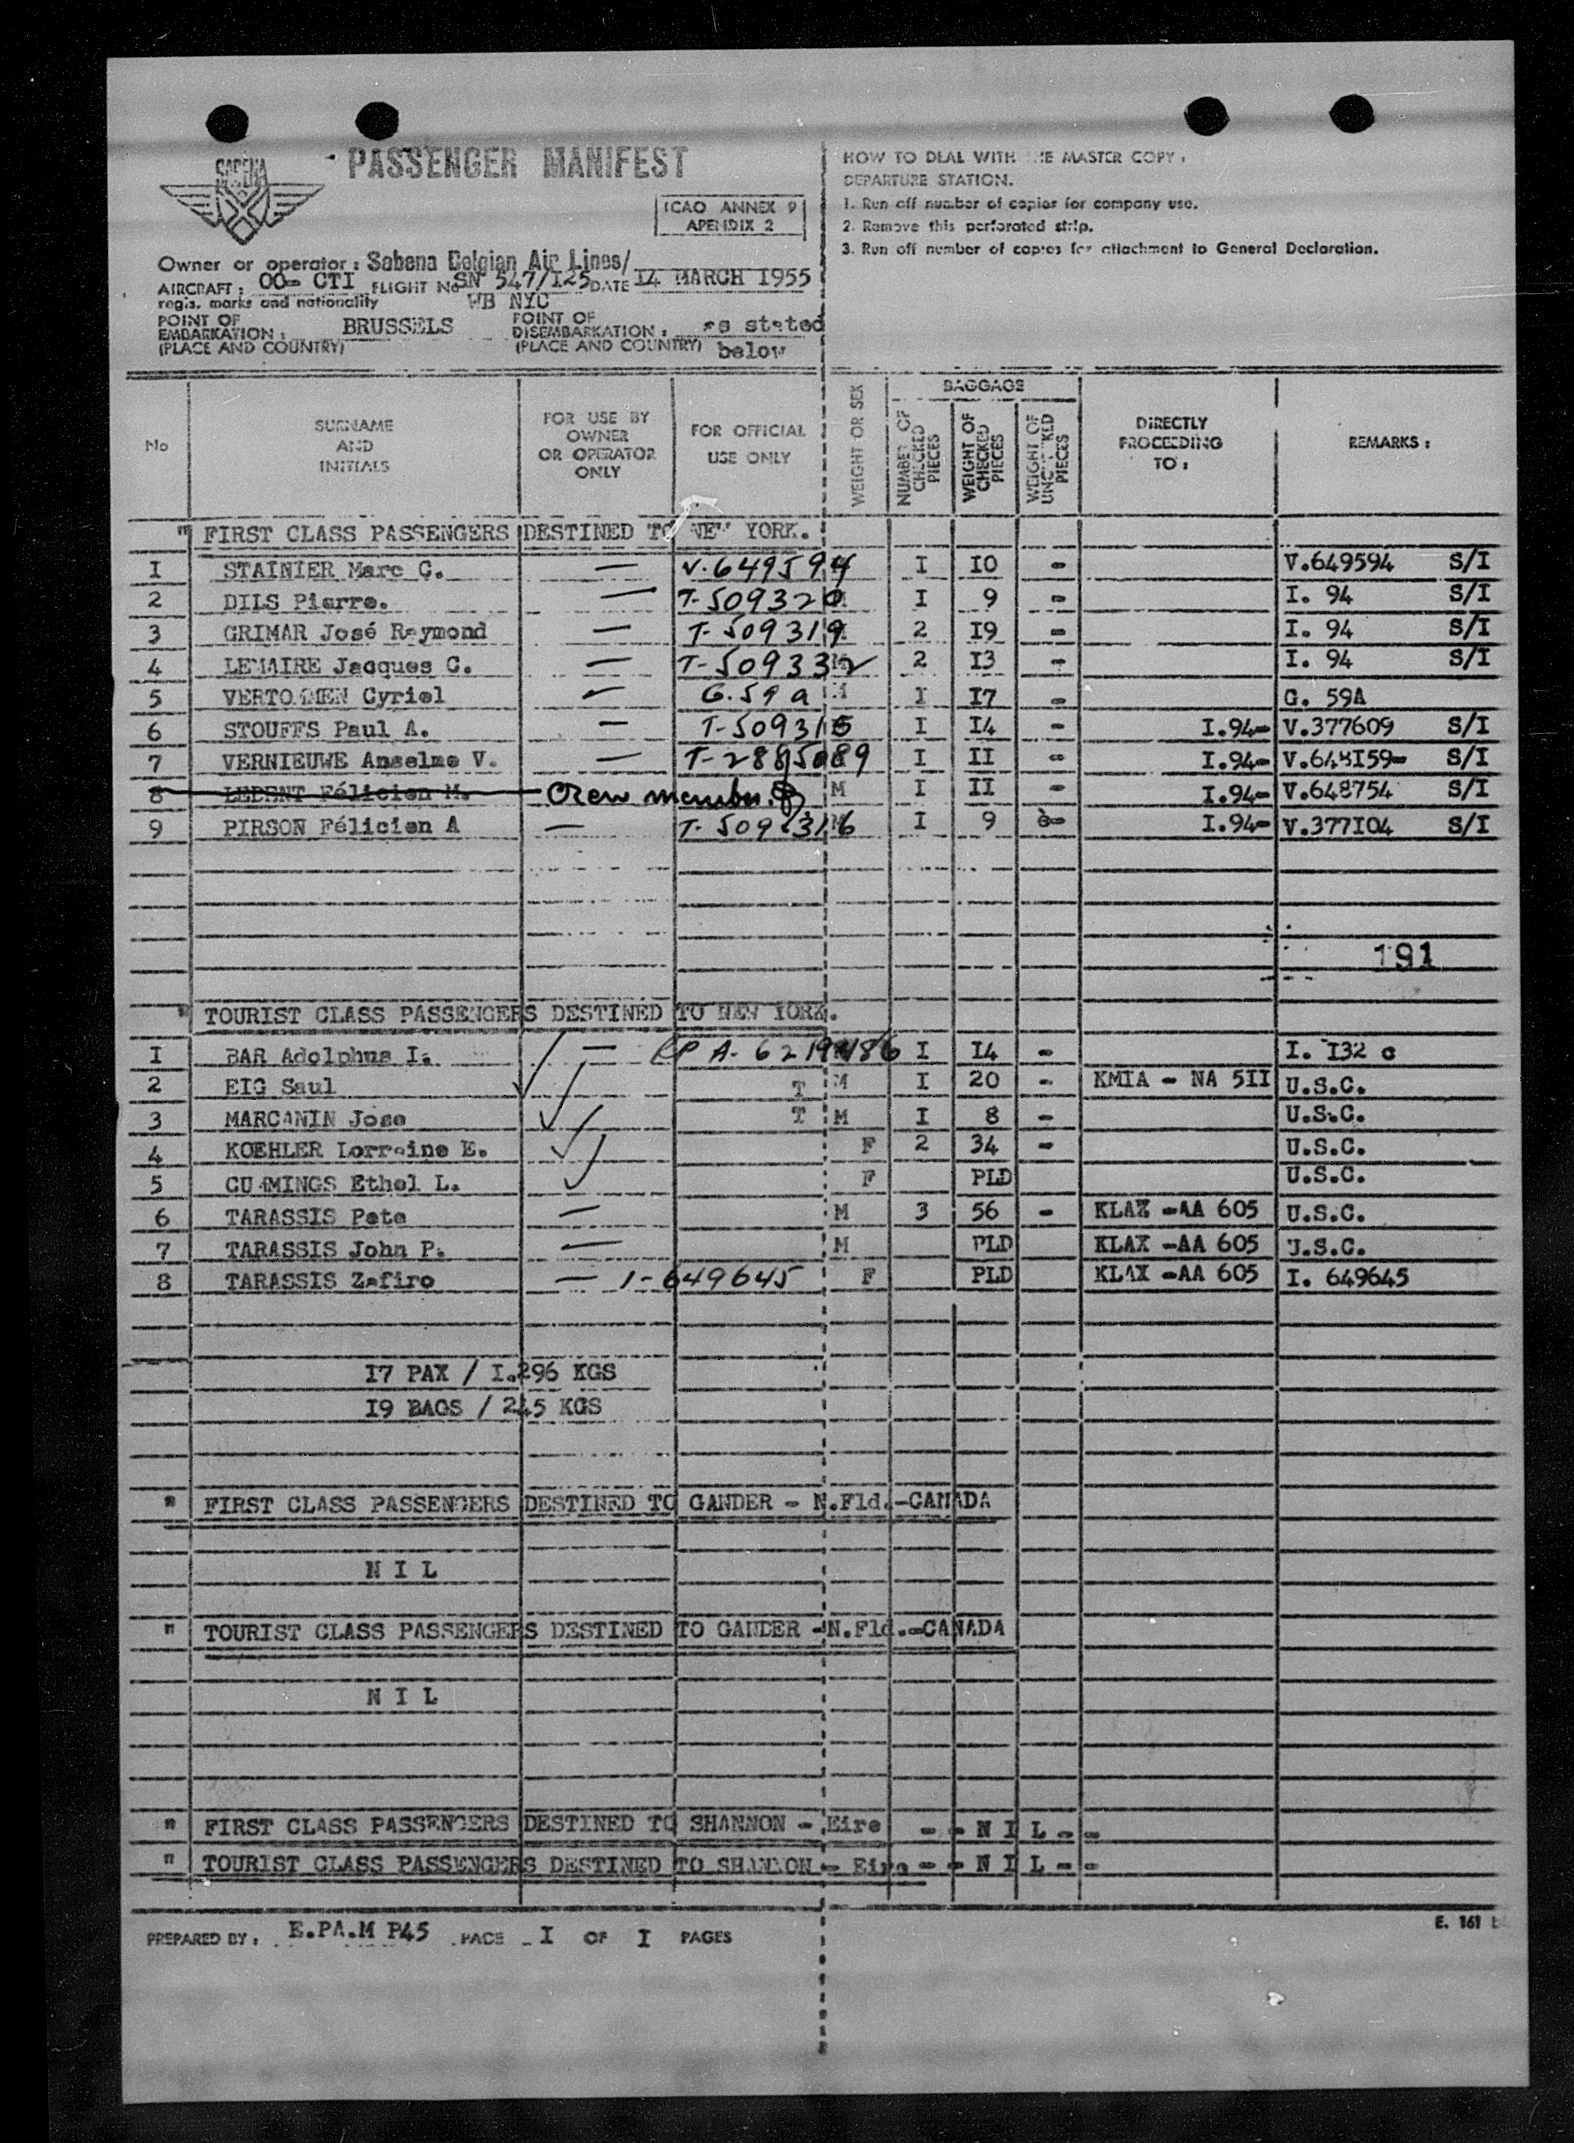 SABENA
PASSENGER MANIFEST
ICAO ANNEX 9
APENDIX 2
HOW TO DEAL WITH THE MASTER COPY :
DEPARTURE STATION.
1. Run off number of copies for company use.
2. Remove this perforated strip.
3. Run off number of copies for attachment to General Declaration.
Owner or operator : Sabena Belgian Air Lines/
AIRCRAFT : OO- CTI FLIGHT No SN 547/I25 DATE I4 MARCH I955
regis. marks and nationality WB NYC
POINT OF EMBARKATION : BRUSSELS POINT OF DISEMBARKATION : as stated
(PLACE AND COUNTRY) (PLACE AND COUNTRY) below
No
SURNAME AND INITIALS
FOR USE BY OWNER OR OPERATOR ONLY
FOR OFFICIAL USE ONLY
WEIGHT OR SEX
BAGGAGE
NUMBER OF CHECKED PIECES
WEIGHT OF CHECKED PIECES
WEIGHT OF UNCHECKED PIECES
DIRECTLY PROCEEDING TO :
REMARKS :
" FIRST CLASS PASSENGERS DESTINED TO NEW YORK.
I STAINIER Marc C. — V.649594 I I0 - V.649594 S/I
2 DILS Pierre. — T-509320 I 9 - I. 94 S/I
3 GRIMAR José Raymond — T-509319 2 I9 - I. 94 S/I
4 LEMAIRE Jacques C. — T-509332 M 2 I3 - I. 94 S/I
5 VERTOMMEN Cyriel — G.59a M I I7 - G. 59A
6 STOUFFS Paul A. — T-509315 I I4 - I.94- V.377609 S/I
7 VERNIEUWE Anselme V. — T-2885089 I II - I.94- V.648I59- S/I
8 LEDENT Félicien M. Crew member. M I II - I.94- V.648754 S/I
9 PIRSON Félicien A — T-509316 I 9 - I.94- V.377I04 S/I
191
" TOURIST CLASS PASSENGERS DESTINED TO NEW YORK.
I BAR Adolphus I. — PA-6219486 I I4 - I. I32 c
2 EIG Saul T M I 20 - KMIA - NA 5II U.S.C.
3 MARCANIN Jose T M I 8 - U.S.C.
4 KOEHLER Lorraine E. F 2 34 - U.S.C.
5 CUMMINGS Ethel L. F PLD U.S.C.
6 TARASSIS Pete — M 3 56 - KLAX -AA 605 U.S.C.
7 TARASSIS John P. — M PLD KLAX -AA 605 U.S.C.
8 TARASSIS Zafiro — I-649645 F PLD KLAX -AA 605 I. 649645
I7 PAX / I.296 KGS
I9 BAGS / 245 KGS
" FIRST CLASS PASSENGERS DESTINED TO GANDER - N.Fld.-CANADA
N I L
" TOURIST CLASS PASSENGERS DESTINED TO GANDER -N.Fld.-CANADA
N I L
" FIRST CLASS PASSENGERS DESTINED TO SHANNON - Eire - - N I L - -
" TOURIST CLASS PASSENGERS DESTINED TO SHANNON - Eire - - N I L - -
PREPARED BY : E.PA.M P45 PAGE I OF I PAGES
E. 161